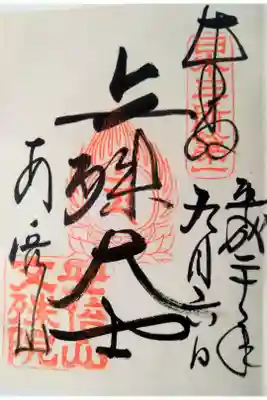 奉拝
平成二十年
九月六日
文殊大士
安倍山
安倍山
文殊院